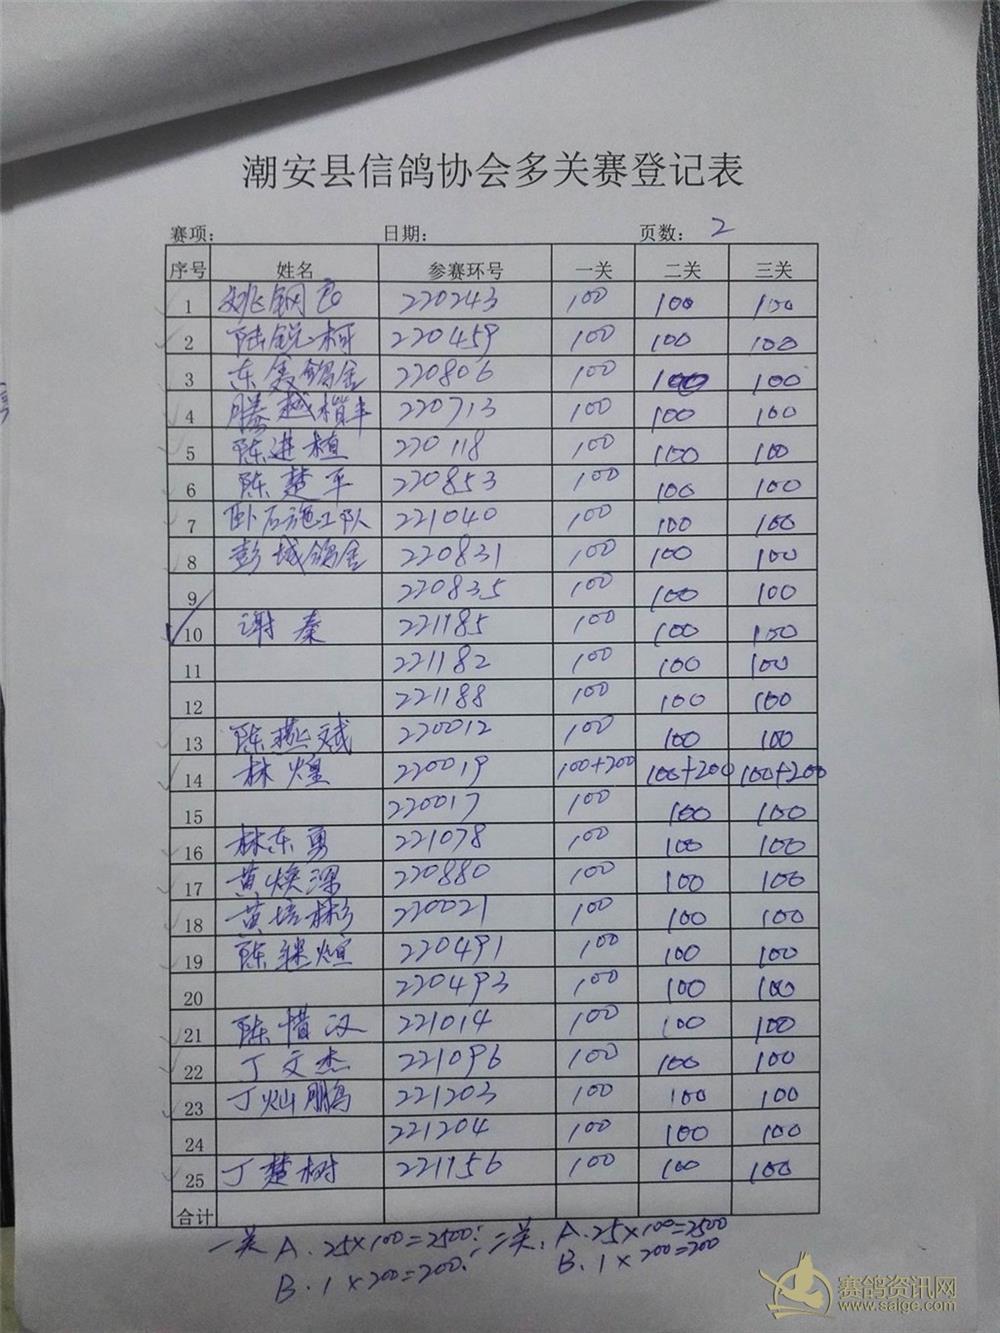 潮安县信鸽协会多关赛登记表
赛项: 日期: 页数: 2
序号 姓名 参赛环号 一关 二关 三关
1 姚钢 220243 100 100 100
2 陆锐柯 220459 100 100 100
3 东美鸽舍 220806 100 100 100
4 腾越楷丰 220713 100 100 100
5 陈进植 220118 100 100 100
6 陈楚平 220853 100 100 100
7 卧石施工队 221040 100 100 100
8 彭城鸽舍 220831 100 100 100
9 220835 100 100 100
10 谢秦 221185 100 100 100
11 221182 100 100 100
12 221188 100 100 100
13 陈燕斌 220012 100 100 100
14 林煌 220019 100+200 100+200 100+200
15 220017 100 100 100
16 林东勇 221078 100 100 100
17 黄焕深 220880 100 100 100
18 黄培彬 220021 100 100 100
19 陈继煌 220491 100 100 100
20 220493 100 100 100
21 陈惜汉 221014 100 100 100
22 丁文杰 221096 100 100 100
23 丁灿鹏 221203 100 100 100
24 221204 100 100 100
25 丁楚树 221156 100 100 100
合计
一关 A. 25×100=2500; 二关: A. 25×100=2500
B. 1×200=200; B. 1×200=200
赛鸽资讯网
www.saige.com